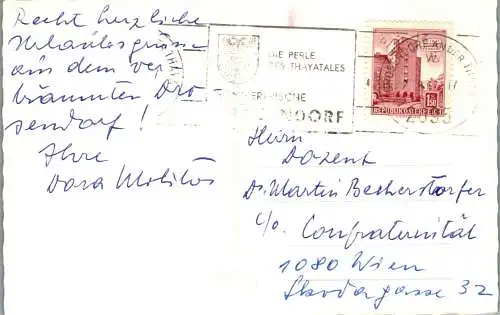 Recht herzliche
Urlaubsgrüsse
aus dem ver
träumten Dro-
sendorf!
Ihre
Dora
DIE PERLE
DES THAYATALES
NDORF
2095
1.50
REPUBLIK ÖSTERREICH
Herrn
Dozent
Dr. Martin Becherstorfer
c/o Confraternität
1080 Wien
Skodagasse 32